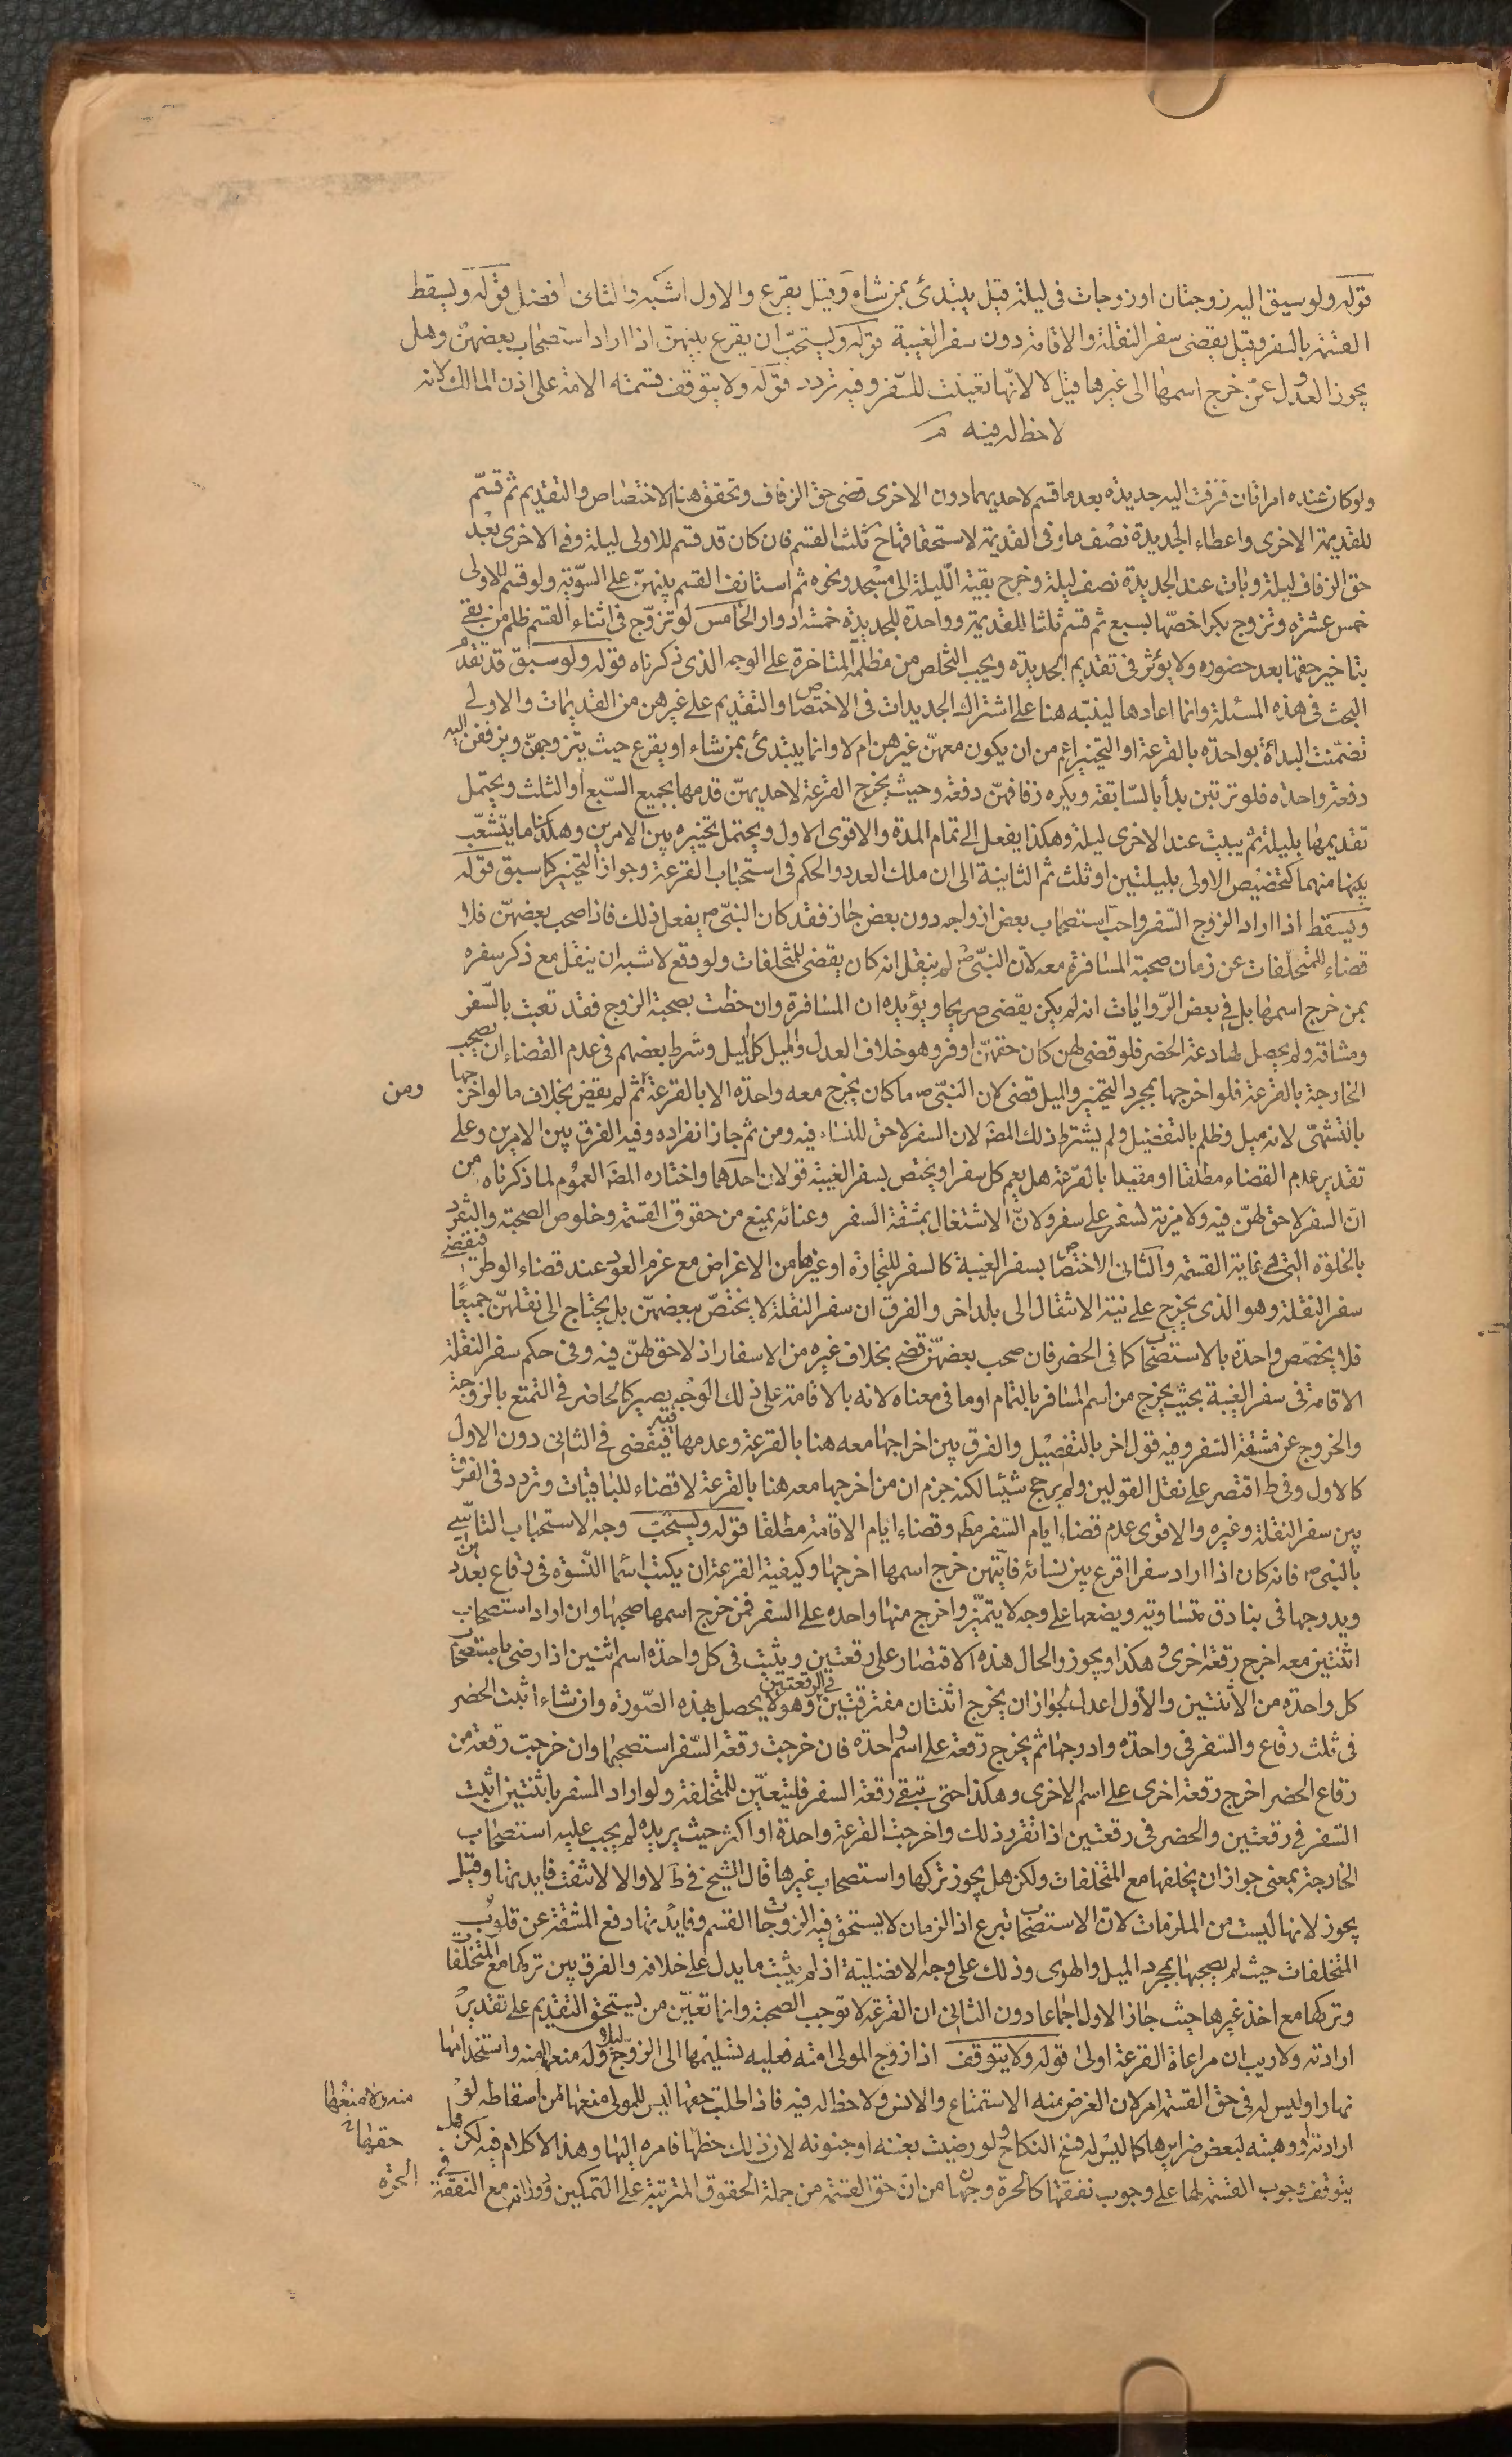 قوله ولو سيق اليه زوجتان او زوجات في ليلة قيل يبتدئ بمن شاء وقيل يقرع والاول اشبه والثاني افضل قوله ويسقط
القسمة بالسفر وقيل يقضى سفر النقلة والاقامة دون سفر الغيبة قوله ويستحب ان يقرع بينهن اذا اراد استصحاب بعضهن وهل
يجوز العدول عمن خرج اسمها الى غيرها قيل لا لانها تعينت للسفر وفيه تردد قوله ولا يتوقف قسمته الامة على اذن المالك لانه
لا حظ له فيه
ولو كان عنده امراتان فزفت اليه جديدة بعد ما قسم لاحديهما دون الاخرى قضى حق الزفاف وتحقق هنا الاختصاص والتقديم ثم قسم
للقديمة الاخرى واعطاء الجديدة نصف ما وفى القديمة لاستحقاقها ح ثلث القسم فان كان قد قسم للاولى ليلة وفى الاخرى بعد
حق الزفاف ليلة وبات عند الجديدة نصف ليلة وخرج بقية الليلة الى مسجد ونحوه ثم استانف القسم بينهن على السوية ولو قسم للاولى
خمس عشرة وتزوج بكرا خصها بسبع ثم قسم ثلثا للقديمة وواحدة للجديدة خمسة ادوار الخامس لو تزوج في اثناء القسم ظلم من بقي
بتاخير حقها بعد حضوره ولا يؤثر في تقديم الجديدة ويجب التخلص من مظلمة المتاخرة على الوجه الذي ذكرناه قوله ولو سبق قد تقدم
البحث في هذه المسئلة وانما اعادها لينبه هنا على اشتراك الجديدات في الاختصاص والتقديم على غيرهن من القديمات والاولى
تضمنت البداة بواحدة بالقرعة او التخيير اعم من ان يكون معهن غيرهن ام لا وانما يبتدئ بمن شاء او يقرع حيث يتزوجهن ويزففن اليه
دفعة واحدة فلو ترتبن بدأ بالسابقة ويكره زفافهن دفعة وحيث يخرج القرعة لاحديهن قدمها بجميع السبع او الثلث ويحتمل
تقديمها بليلة ثم يبيت عند الاخرى ليلة وهكذا يفعل الى تمام المدة والاقوى الاول ويحتمل تخييره بين الامرين وهكذا ما يتشعب
بينهما منهما كتخصيص الاولى بليلتين او ثلث ثم الثانية الى ان ملك العدد والحكم في استحباب القرعة وجواز التخيير كما سبق قوله
ويسقط اذا اراد الزوج السفر واحب استصحاب بعض ازواجه دون بعض جاز فقد كان النبي ص يفعل ذلك فاذا صحب بعضهن فلا
قضاء للمتخلفات عن زمان صحبة المسافرة معه لان النبي ص لم ينقل انه كان يقضى للمتخلفات ولو وقع لاشبه ان ينقل مع ذكر سفره
بمن خرج اسمها بل في بعض الروايات انه لم يكن يقضى صريحا ويؤيده ان المسافرة وان حظت بصحبة الزوج فقد تعبت بالسفر
ومشاقه ولم يحصل لها دعة الحضر فلو قضى لهن كان حقهن اوفر وهو خلاف العدل والميل كل الميل وشرط بعضهم في عدم القضاء ان يصحب
الخارجة بالقرعة فلو اخرجها بمجرد التخيير والميل قضى لان النبي ص ما كان يخرج معه واحدة الا بالقرعة ثم لم يقض بخلاف ما لو اخرجها
بالتشهى لانه ميل وظلم بالتفضيل ولم يشترط ذلك المصـ لان السفر لا حق للنساء فيه ومن ثم جاز انفراده وفيه الفرق بين الامرين وعلى
تقدير عدم القضاء مطلقا او مقيدا بالقرعة هل يعم كل سفر او يختص بسفر الغيبة قولان احدهما واختاره المصـ العموم لما ذكرناه من
ان السفر لا حق لهن فيه ولا مزية لسفر على سفر ولان الاشتغال بمشقة السفر وعنائه يمنع من حقوق القسمة وخلوص الصحبة والتفرد
بالخلوة التي هي غاية القسمة والثاني الاختصاص بسفر الغيبة كالسفر للتجارة او غيرها من الاغراض مع عزم العود عند قضاء الوطر فيقضى
سفر النقلة وهو الذي يخرج على نية الانتقال الى بلد اخر والفرق ان سفر النقلة لا يختص ببعضهن بل يحتاج الى نقلهن جميعا
فلا يخصص واحدة بالاستصحاب كما في الحضر فان صحب بعضهن قضى بخلاف غيره من الاسفار اذ لا حق لهن فيه وفي حكم سفر النقلة
الاقامة في سفر الغيبة بحيث يخرج من اسم المسافر بالتمام او ما في معناه لانه بالاقامة على ذلك الوجه يصير كالحاضر في التمتع بالزوجة
والخروج عن مشقة السفر وفيه قول اخر بالتفصيل والفرق بين اخراجها معه هنا بالقرعة وعدمها فيقضى في الثاني دون الاول
كالاول وفي ط اقتصر على نقل القولين ولم يرجح شيئا لكنه جزم ان من اخرجها معه هنا بالقرعة لا قضاء للباقيات وتردد في الفرق
بين سفر النقلة وغيره والاقوى عدم قضاء ايام السفر مطـ وقضاء ايام الاقامة مطلقا قوله ويستحب وجه الاستحباب التاسي
بالنبي ص فانه كان اذا اراد سفرا اقرع بين نسائه فايتهن خرج اسمها اخرجها وكيفية القرعة ان يكتب اسما النسوة في رقاع بعددهن
ويدرجها في بنادق متساوية ويضعها على وجه لا يتميز واخرج منها واحدة على السفر فمن خرج اسمها صحبها وان اراد استصحاب
اثنتين معه اخرج رقعة اخرى وهكذا ويجوز والحال هذه الاقتصار على رقعتين ويثبت في كل واحدة اسم اثنتين اذا رضى باستصحاب
كل واحدة من الاثنتين والاول اعدل لجواز ان يخرج اثنتان مفترقتين في الرقعتين وهو لا يحصل بهذه الصورة وان شاء اثبت الحضر
في ثلث رقاع والسفر في واحدة وادرجها ثم يخرج رقعة على اسم واحدة فان خرجت رقعة السفر استصحبها وان خرجت رقعة من
رقاع الحضر اخرج رقعة اخرى على اسم الاخرى وهكذا حتى تبقى رقعة السفر فليتعين للمتخلفة ولو اراد السفر باثنتين اثبت
السفر في رقعتين والحضر في رقعتين اذا تقرر ذلك واخرجت القرعة واحدة او اكثر حيث يريده لم يجب عليه استصحاب
الخارجة بمعنى جواز ان يخلفها مع المتخلفات ولكن هل يجوز تركها واستصحاب غيرها قال الشيخ في ط لا والا لانتفت فايدتها وقيل
يجوز لانها ليست من الملزمات لان الاستصحاب تبرع اذ الزمان لا يستحق فيه الزوجات القسم وفايدتها دفع المشقة عن قلوب
المتخلفات حيث لم يصحبها بمجرد الميل والهوى وذلك على وجه الافضلية اذ لم يثبت ما يدل على خلافه والفرق بين تركها مع المتخلفات
وتركها مع اخذ غيرها حيث جاز الاول اجماعا دون الثاني ان القرعة لا توجب الصحبة وانما تعين من يستحق التقديم على تقدير
ارادته ولا ريب ان مراعاة القرعة اولى قوله ولا يتوقف اذا زوج المولى امته فعليه تسليمها الى الزوج ليلا وله منعها منه واستخدامها
نهارا وليس له في حق القسمة امر لان الغرض منه الاستمتاع والانس ولا حظ له فيه فاذا طلبت حقها ليس للمولى منعها من اسقاطه لو
ارادته او وهبته لبعض ضرايرها كما ليس له فسخ النكاح ولو رضيت بعنته او جنونه لان ذلك حظها فامره اليها وهذا لا كلام فيه لكن هل
يتوقف وجوب القسمة لها على وجوب نفقتها كالحرة وجهان من ان حق القسمة من جملة الحقوق المترتبة على التمكين ودورانه مع النفقة في الحرة
ومن
منه ولا منعها
حقها